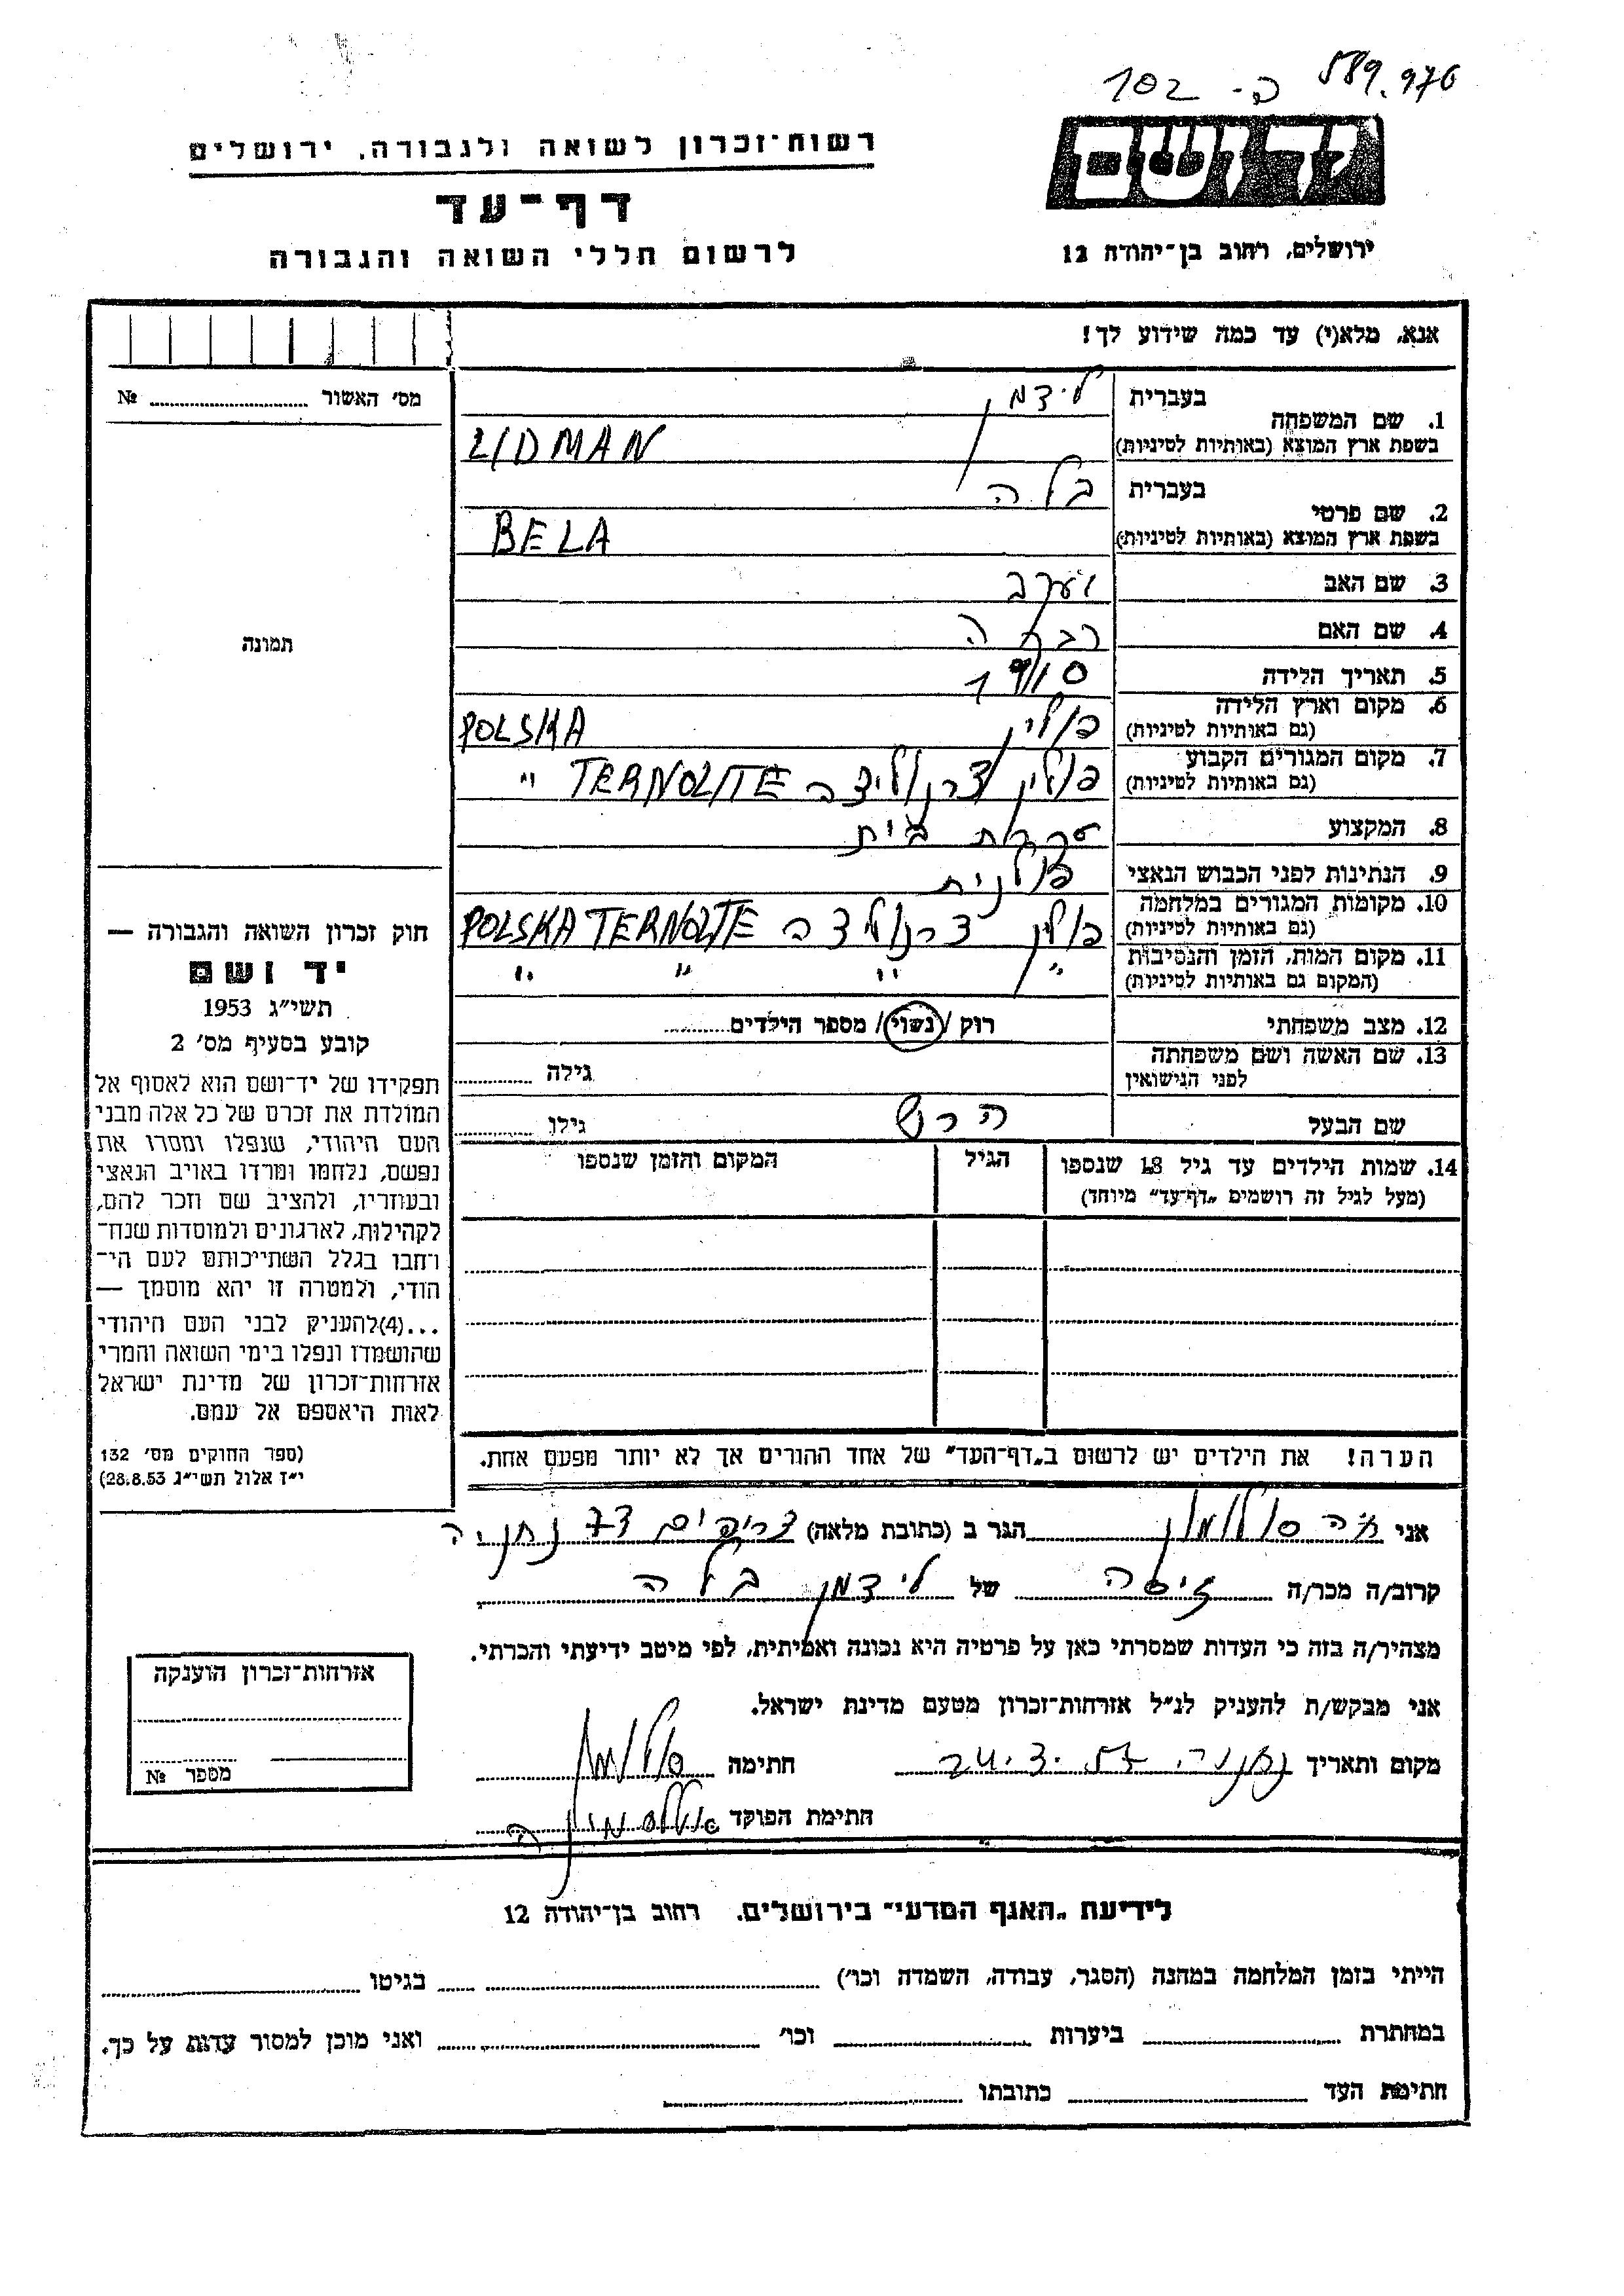 589.976
ה- 102
יד ושם
ירושלים, רחוב בן־יהודה 12
רשות־זכרון לשואה ולגבורה, ירושלים
דף־עד
לרשום חללי השואה והגבורה
אנא, מלא(י) עד כמה שידוע לך!
מס׳ האשור № 
1. שם המשפחה בעברית לידמן
בשפת ארץ המוצא (באותיות לטיניות) LIDMAN
2. שם פרטי בעברית בלה
בשפת ארץ המוצא (באותיות לטיניות) BELA
3. שם האב יעקב
4. שם האם רבקה
5. תאריך הלידה 1910
6. מקום וארץ הלידה (גם באותיות לטיניות) פולין POLSKA
7. מקום המגורים הקבוע (גם באותיות לטיניות) פולין TERNOLITE "
8. המקצוע עקרת בית
9. הנתינות לפני הכבוש הנאצי פולנית
10. מקומות המגורים במלחמה (גם באותיות לטיניות) פולין POLSKA TERNOLITE
11. מקום המות, הזמן והנסיבות (המקום גם באותיות לטיניות) " " " "
12. מצב משפחתי רוק / נשוי / מספר הילדים
13. שם האשה ושם משפחתה לפני הנישואין גילה
שם הבעל הרש גילו
14. שמות הילדים עד גיל 18 שנספו (מעל לגיל זה רושמים „דף־עד״ מיוחד)
הגיל
המקום והזמן שנספו
הערה! את הילדים יש לרשום ב„דף־העד״ של אחד ההורים אך לא יותר מפעם אחת.
תמונה
חוק זכרון השואה והגבורה —
יד ושם
תשי״ג 1953
קובע בסעיף מס׳ 2
תפקידו של יד־ושם הוא לאסוף אל
המולדת את זכרם של כל אלה מבני
העם היהודי, שנפלו ומסרו את
נפשם, נלחמו ומרדו באויב הנאצי
ובעוזריו, ולהציב שם וזכר להם,
לקהילות, לארגונים ולמוסדות שנח־
רחבו בגלל השתייכותם לעם הי־
הודי, ולמטרה זו יהא מוסמך —
...(4)להעניק לבני העם היהודי
שהושמדו ונפלו בימי השואה והמרי
אזרחות־זכרון של מדינת ישראל
לאות היאספם אל עמם.
(ספר החוקים מס׳ 132
י״ז אלול תשי״ג 28.8.53)
אני חיה סולומון הגר ב (כתובת מלאה) צריפים 73 נתניה
קרוב/ה מכר/ה גיסה של לידמן בלה
מצהיר/ה בזה כי העדות שמסרתי כאן על פרטיה היא נכונה ואמיתית, לפי מיטב ידיעתי והכרתי.
אני מבקש/ת להעניק לנ״ל אזרחות־זכרון מטעם מדינת ישראל.
מקום ותאריך נתניה 24.3.57 חתימה
חתימת הפוקד
אזרחות־זכרון הוענקה
מספר №
לידיעת „האגף המדעי״ בירושלים. רחוב בן־יהודה 12
הייתי בזמן המלחמה במחנה (הסגר, עבודה, השמדה וכו׳) בגיטו
במחתרת ביערות וכו׳ ואני מוכן למסור עדות על כך.
חתימת העד כתובתו